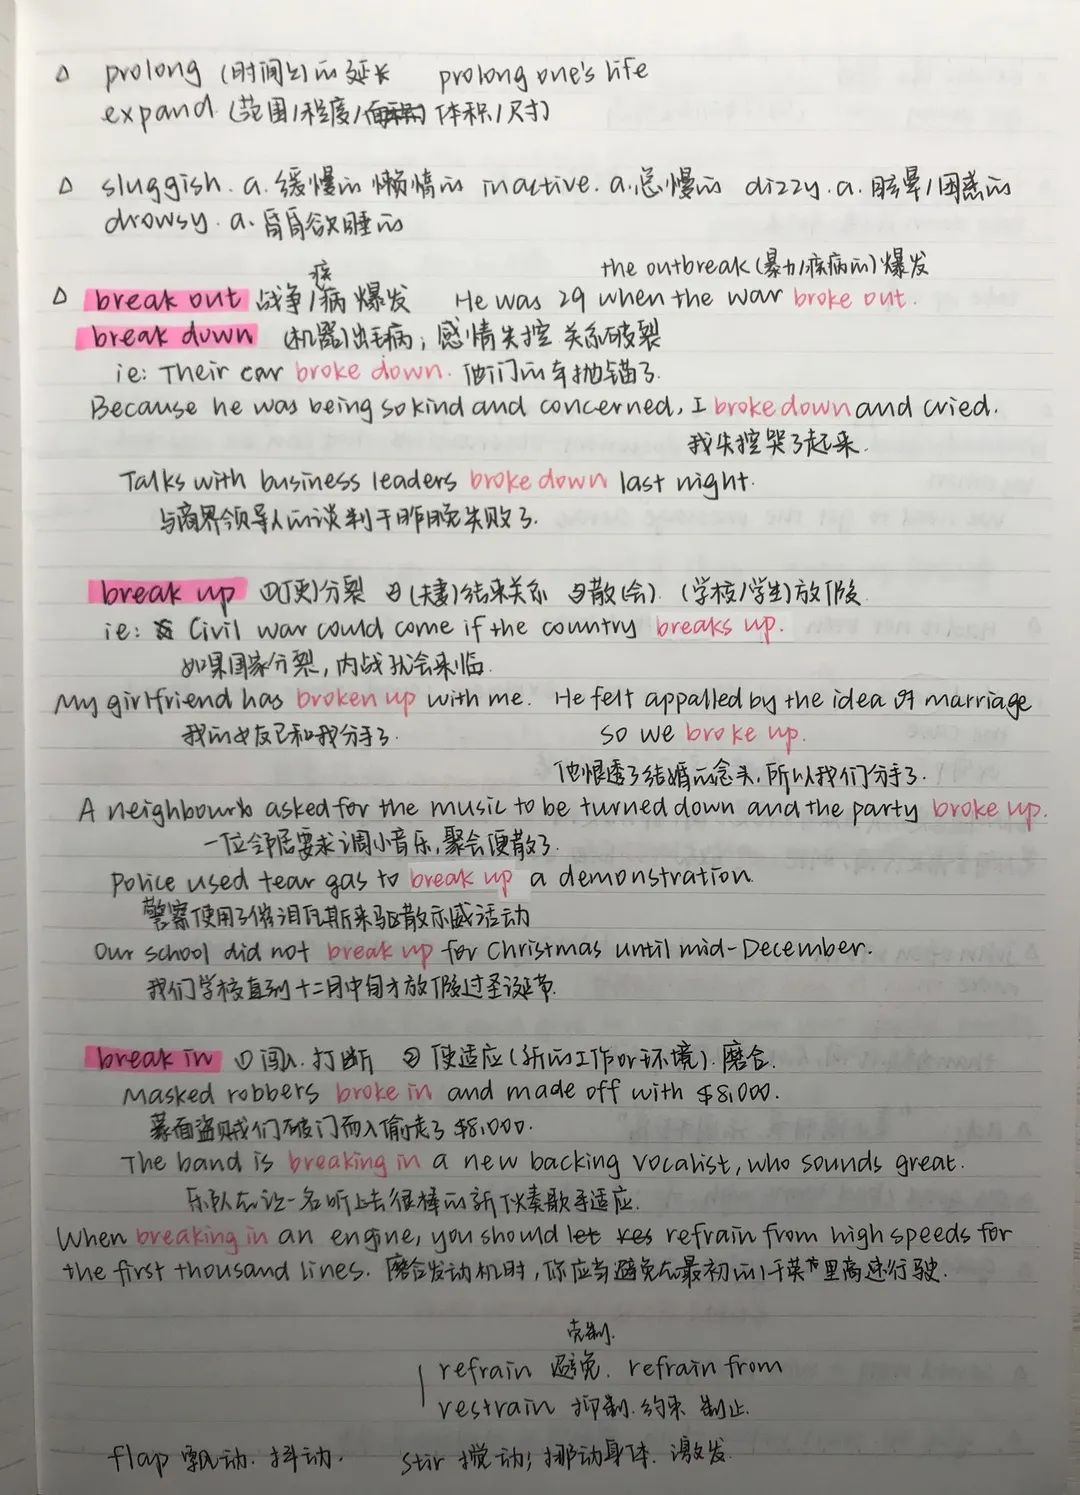 △ prolong (时间上)的延长 prolong one's life
expand (范围/程度/体积/尺寸)
△ sluggish. a. 缓慢的 懒惰的 inactive. a. 怠慢的 dizzy. a. 眩晕/困惑的
drowsy. a. 昏昏欲睡的
the outbreak (暴力/疾病的)爆发
△ break out 战争/疾病 爆发 He was 29 when the war broke out.
break down (机器)出毛病; 感情失控 关系破裂
ie: Their car broke down. 他们的车抛锚了.
Because he was being so kind and concerned, I broke down and cried.
我失控哭了起来.
Talks with business leaders broke down last night.
与商界领导人的谈判于昨晚失败了.
break up ①分裂 ②(夫妻)结束关系 ③散(会). (学校/学生)放假
ie: Civil war could come if the country breaks up.
如果国家分裂, 内战就会来临.
My girlfriend has broken up with me. He felt appalled by the idea of marriage
我的女友已和我分手了. so we broke up.
他恨透了结婚的念头, 所以我们分手了.
A neighbour asked for the music to be turned down and the party broke up.
一位邻居要求调小音乐, 聚会便散了.
Police used tear gas to break up a demonstration
警察使用了催泪瓦斯来驱散示威活动
Our school did not break up for Christmas until mid-December.
我们学校直到十二月中旬才放假过圣诞节.
break in ① 闯入. 打断 ② 使适应(新的工作or环境). 磨合.
Masked robbers broke in and made off with $8,000.
蒙面盗贼们破门而入偷走了 $8,000.
The band is breaking in a new backing vocalist, who sounds great.
乐队在让一名听上去很棒的新伴奏歌手适应.
When breaking in an engine, you should refrain from high speeds for
the first thousand lines. 磨合发动机时, 你应当避免在最初的1千英里高速行驶.
克制.
refrain 避免. refrain from
restrain 抑制. 约束 制止.
flap 飘动. 抖动. stir 搅动; 挪动身体. 激发.